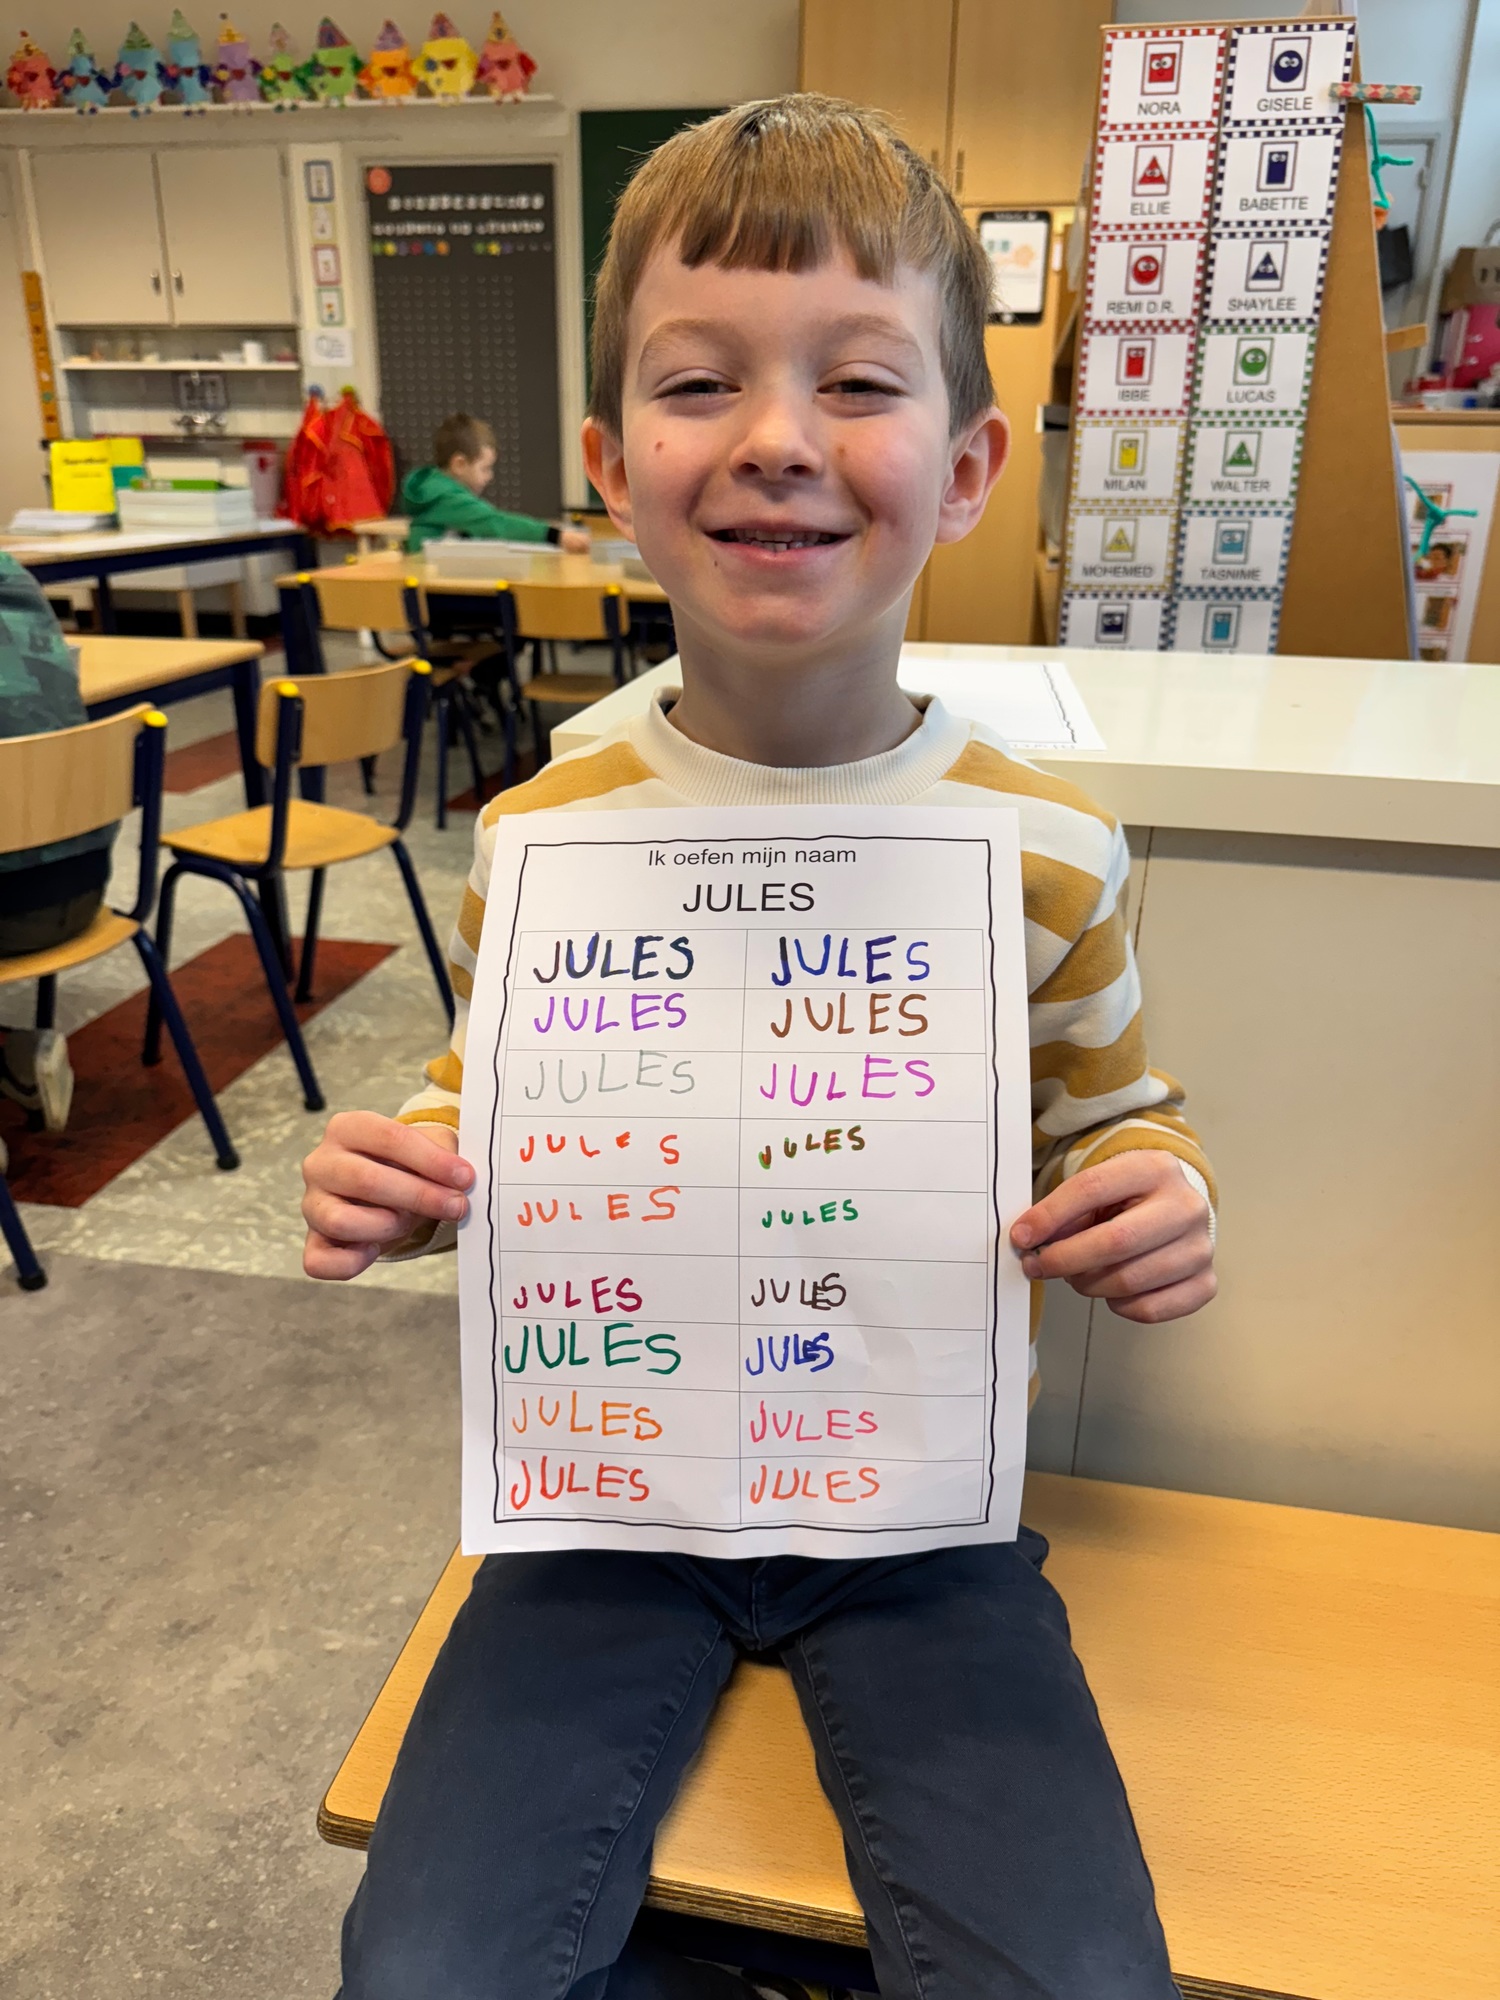 NORA GISELE
ELLIE BABETTE
REMI D.R. SHAYLEE
IBBE LUCAS
MILAN WALTER
MOHEMED TASNIME
Ik oefen mijn naam
JULES
JULES JULES
JULES JULES
JULES JULES
JULES JULES
JULES JULES
JULES JULES
JULES JULES
JULES JULES
JULES JULES